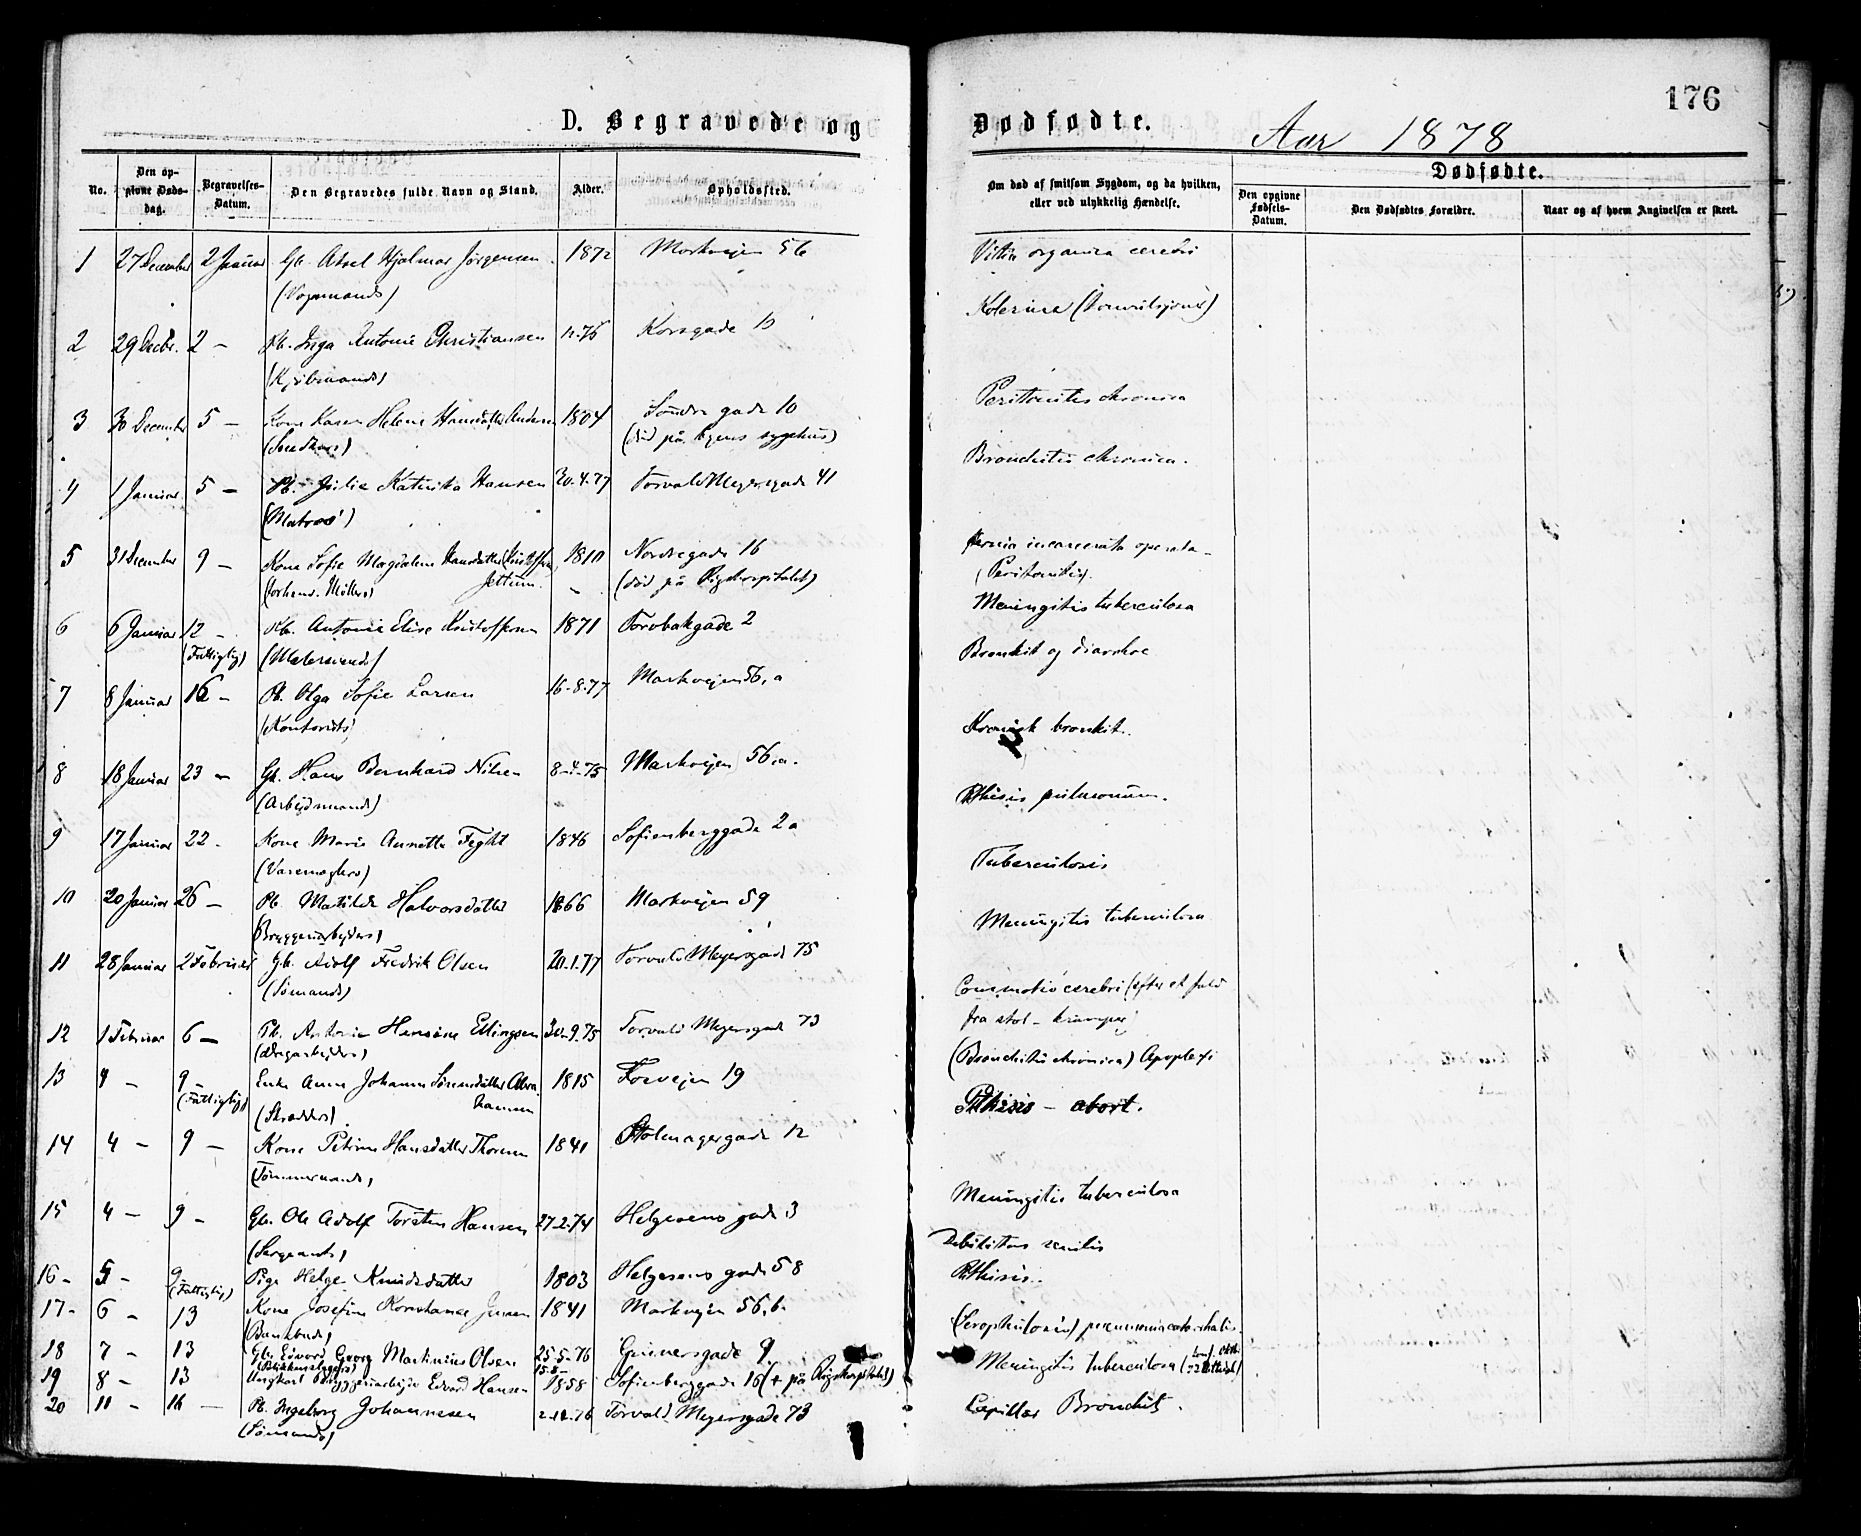 176
D. Begravede og Dødfødte.
Aar 1878
No.
Den opgivne Dødsdag.
Begravelses-Datum.
Den Begravedes fulde Navn og Stand.
Alder.
Opholdssted.
Om død af smitsom Sygdom, og da hvilken, eller ved ulykkelig Hændelse.
Dødfødte.
Den opgivne Fødsels-Datum.
Den Dødfødtes Forældre.
Naar og af hvem Angivelsen er skeet.
1 27 December 2 Januar Gb. Axel Hjalmar Jørgensen 1872 Markvejen 56 Vitia organica cerebri
(Vognmands)
2 29 Decbr. 2 — Pb. Inga Antonie Christiansen Korsgade Kolerina
(Kjøbmands)
3 30 December 5 — Kone Karen Helene Hansdatter 1804 Søndre gade 10 Peritonitis chronica
(Snedkers) (død på sygehus)
4 1 Januar 5 — Pb. Julie Katinka Hansen 20.4.77 Torvald Meyersgade 41 Bronchitis chronica.
(Matros')
5 31 December 9 — Kone Sofie Magdalene 1810 Nordregade 16 Hernia incarcerata operata —
Møllers) (død på Rigshospitalet) (Peritonitis).
6 6 Januar 12 — Pb. Antonie Elise Kristoffersen 1871 Torvbakgade 2 Meningitis tuberculosa
(Fattiglig)
7 8 Januar 16 — Pb. Olga Sofie Larsen 16-8-77 Markvejen 56, a Bronkit og diarrhoe
(Kontorists)
8 18 Januar 23 — Gb. Hans Bernhard Nilsen 8-4-75 Markvejen 56, a. Kronisk bronkit.
(Arbejdsmands)
9 17 Januar 22 - Kone Marie Annette 1846 Sofienberggade 2 a Phthisis pulmonum.
(Varemæglers)
10 20 Januar 26 — Pb. Matilde Halvorsdatter 1866 Markvejen 59 Tuberculosis
(Bryggeriarbejders)
11 28 Januar 2 Februar Gb. Adolf Fredrik Olsen 20.1.77 Torvald Meyersgade 75 Meningitis tuberculosa
(Sømands)
12 1 Februar 6 — Pb. Hansine Ellingsen 30-9-75 Torvald Meyersgade 73 Commotio cerebri (efter et fald
fra stol - kramper)
13 4 — 9 — Enke Anne Johanne Sørensdatter 1815 Fosvejen 19 (Bronchitis chronica) Apoplexi
(Fattiglig) (Skrædders)
14 4 — 9 — Kone Hansdatter 1841 Stolmagergade 12 Phthisis — abort.
(Tømmermands)
15 4 — 9 — Gb. Ole Adolf Torsten Hansen 27.2.74 Helgesens gade 3 Meningitis tuberculosa
(Sergeants)
16 - 5 — 9 — Pige Helge Knudsdatter 1803 Helgesens gade 58 Debilitas senilis
(Fattiglig)
17 - 6 — 13 Kone Josefine Konstance Jensen 1841 Markvejen 56, b. Phthisis.
18 7 — 13 Gb. Edvard Georg Martinius Olsen 25-5-76 Grünersgade 9 (Scrophulosis) pneumonia catarrhalis.
(Blikkenslagers)
19 8 — 13 Ungkarl Bryggeriarbejder Edvard Hansen 1858 Sofienberggade 16 († på Rigshospitalet) Meningitis tuberculosa
20 11 — 16 — Pb. Ingeborg Johannesen 2-12-76 Torvald Meyersgade 73 Capillær Bronchit.
(Sømands)